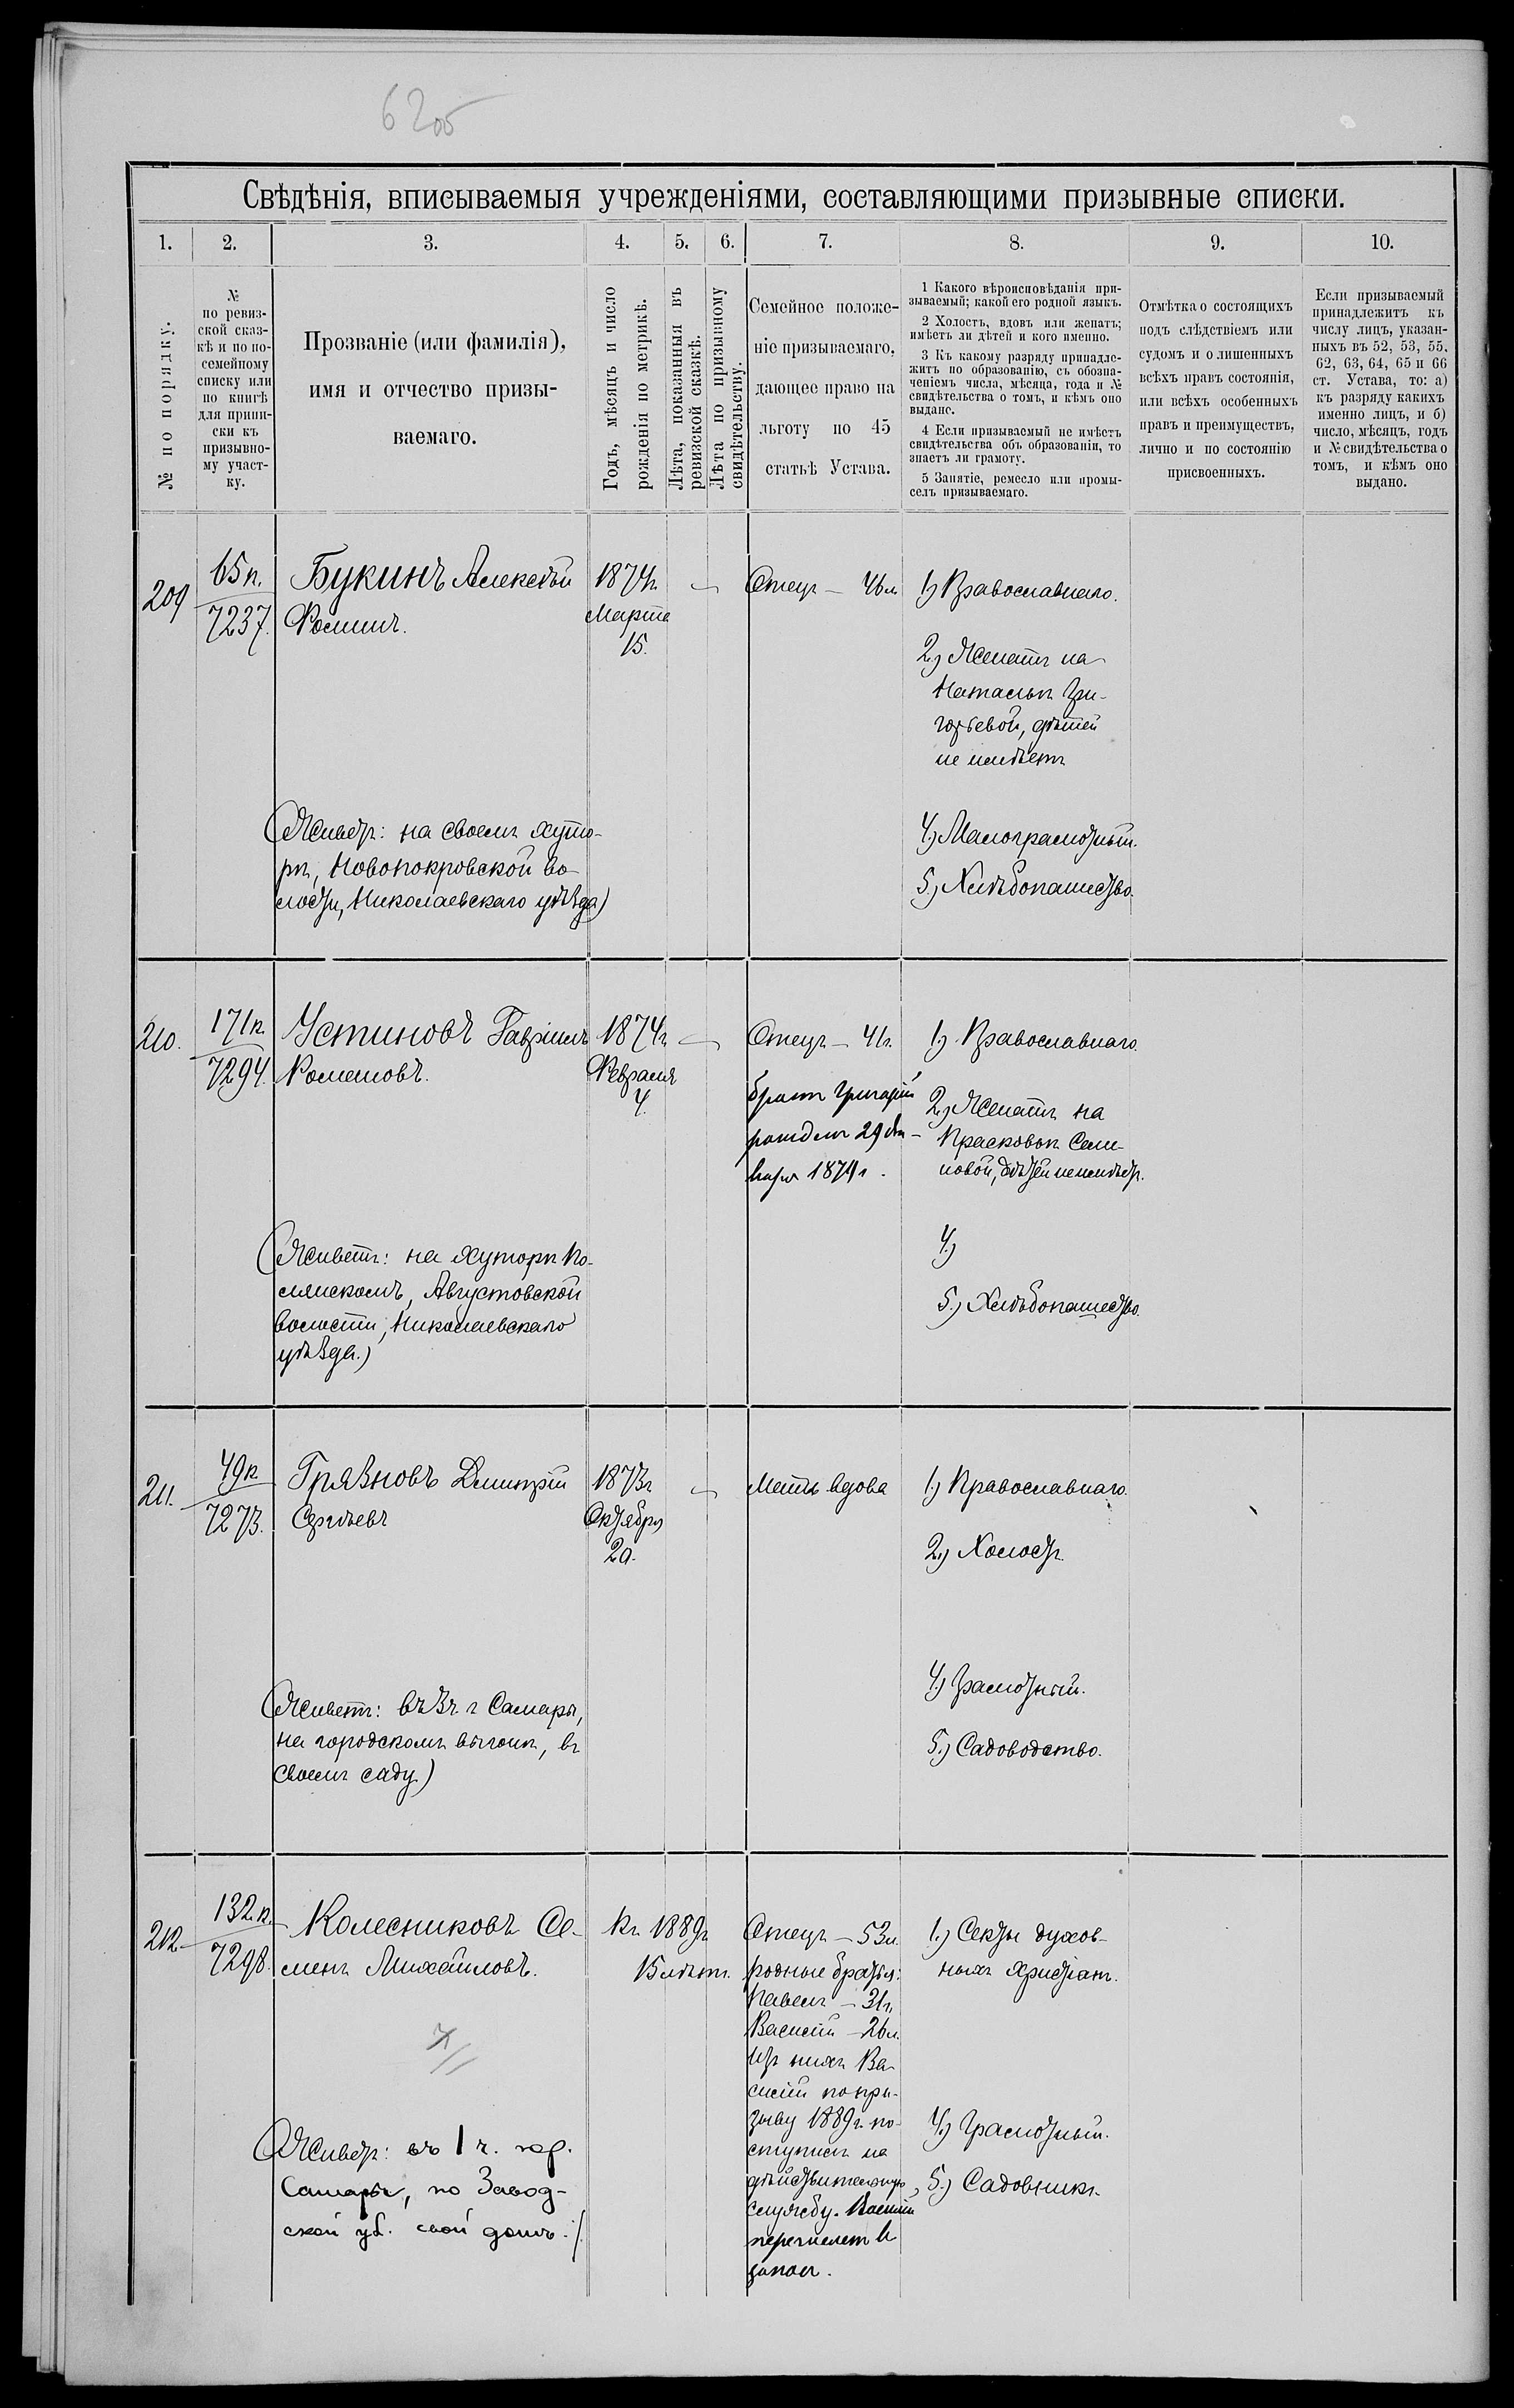 62об
Свѣдѣнія, вписываемыя учрежденіями, составляющими призывные списки.
1.
2.
3.
4.
5.
6.
7.
8.
9.
10.
№ по порядку.
№
по ревиз-
ской сказ-
кѣ и по по-
семейному
списку или
по книгѣ
для припи-
ски къ
призывно-
му участ-
ку.
Прозваніе (или фамилія),
имя и отчество призы-
ваемаго.
Годъ, мѣсяцъ и число
рожденія по метрикѣ.
Лѣта, показанныя въ
ревизской сказкѣ.
Лѣта по призывному
свидѣтельству.
Семейное положе-
ніе призываемаго,
дающее право на
льготу по 45
статьѣ Устава.
1 Какого вѣроисповѣданія при-
зываемый; какой его родной языкъ.
2 Холостъ, вдовъ или женатъ;
имѣетъ ли дѣтей и кого именно.
3 Къ какому разряду принадле-
житъ по образованію, съ обозна-
ченіемъ числа, мѣсяца, года и №
свидѣтельства о томъ, и кѣмъ оно
выдано.
4 Если призываемый не имѣетъ
свидѣтельства объ образованіи, то
знаетъ ли грамоту.
5 Занятіе, ремесло или промы-
селъ призываемаго.
Отмѣтка о состоящихъ
подъ слѣдствіемъ или
судомъ и о лишенныхъ
всѣхъ правъ состоянія,
или всѣхъ особенныхъ
правъ и преимуществъ,
лично и по состоянію
присвоенныхъ.
Если призываемый
принадлежитъ къ
числу лицъ, указан-
ныхъ въ 52, 53, 55,
62, 63, 64, 65 и 66
ст. Устава, то: а)
къ разряду какихъ
именно лицъ, и б)
число, мѣсяцъ, годъ
и № свидѣтельства о
томъ, и кѣмъ оно
выдано.
209
65п.
7237.
Букинъ Алексѣй
Фоминъ.
1874г.
Марта
15.
Отецъ – 46л
1) Православнаго.
2) Женатъ на
Натальѣ Гри-
горьевой, дѣтей
не имѣетъ
4) Малограмотный.
5.) Хлѣбопашество.
(Живетъ: на своемъ хуто-
рѣ, Новопокровской во-
лости, Николаевскаго уѣзда)
210.
171п.
7294.
Устиновъ Гавріилъ
1874г.
Февраля
4.
Отецъ – 41г.
братъ Григорій
1) Православнаго.
2) Женатъ на
Прасковьѣ Семе-
новой, дѣтей не имѣетъ.
4.)
5.) Хлѣбопашество.
(Живетъ: на хуторѣ По-
лянскомъ, Августовской
волости, Николаевскаго
уѣзда.)
211.
49п
7273.
Грязновъ Дмитрій
Сергѣевъ
1873г
Октября
20.
Мать вдова
1.) Православнаго.
2.) Холостъ.
4.) Грамотный.
5.) Садоводство.
(Живетъ: въ 3ч. г Самары,
на городскомъ выгонѣ, въ
своемъ саду.)
212
132.п.
7298.
Колесниковъ Се-
менъ Михайловъ.
Къ 1889г.
15 лѣтъ.
Отецъ – 53л.
родные братья:
Павелъ – 31г,
Василій – 26л.
Изъ нихъ Ва-
силій по при-
зыву 1889г. по-
ступилъ на
дѣйствительную
службу. Василій
перечисленъ в
запасъ.
1.) Секты духов-
ныхъ христіанъ.
4.) Грамотный.
5.) Садовникъ.
(Живетъ: въ 1 ч. гор.
Самары, по Завод-
ской ул. свой домъ./.